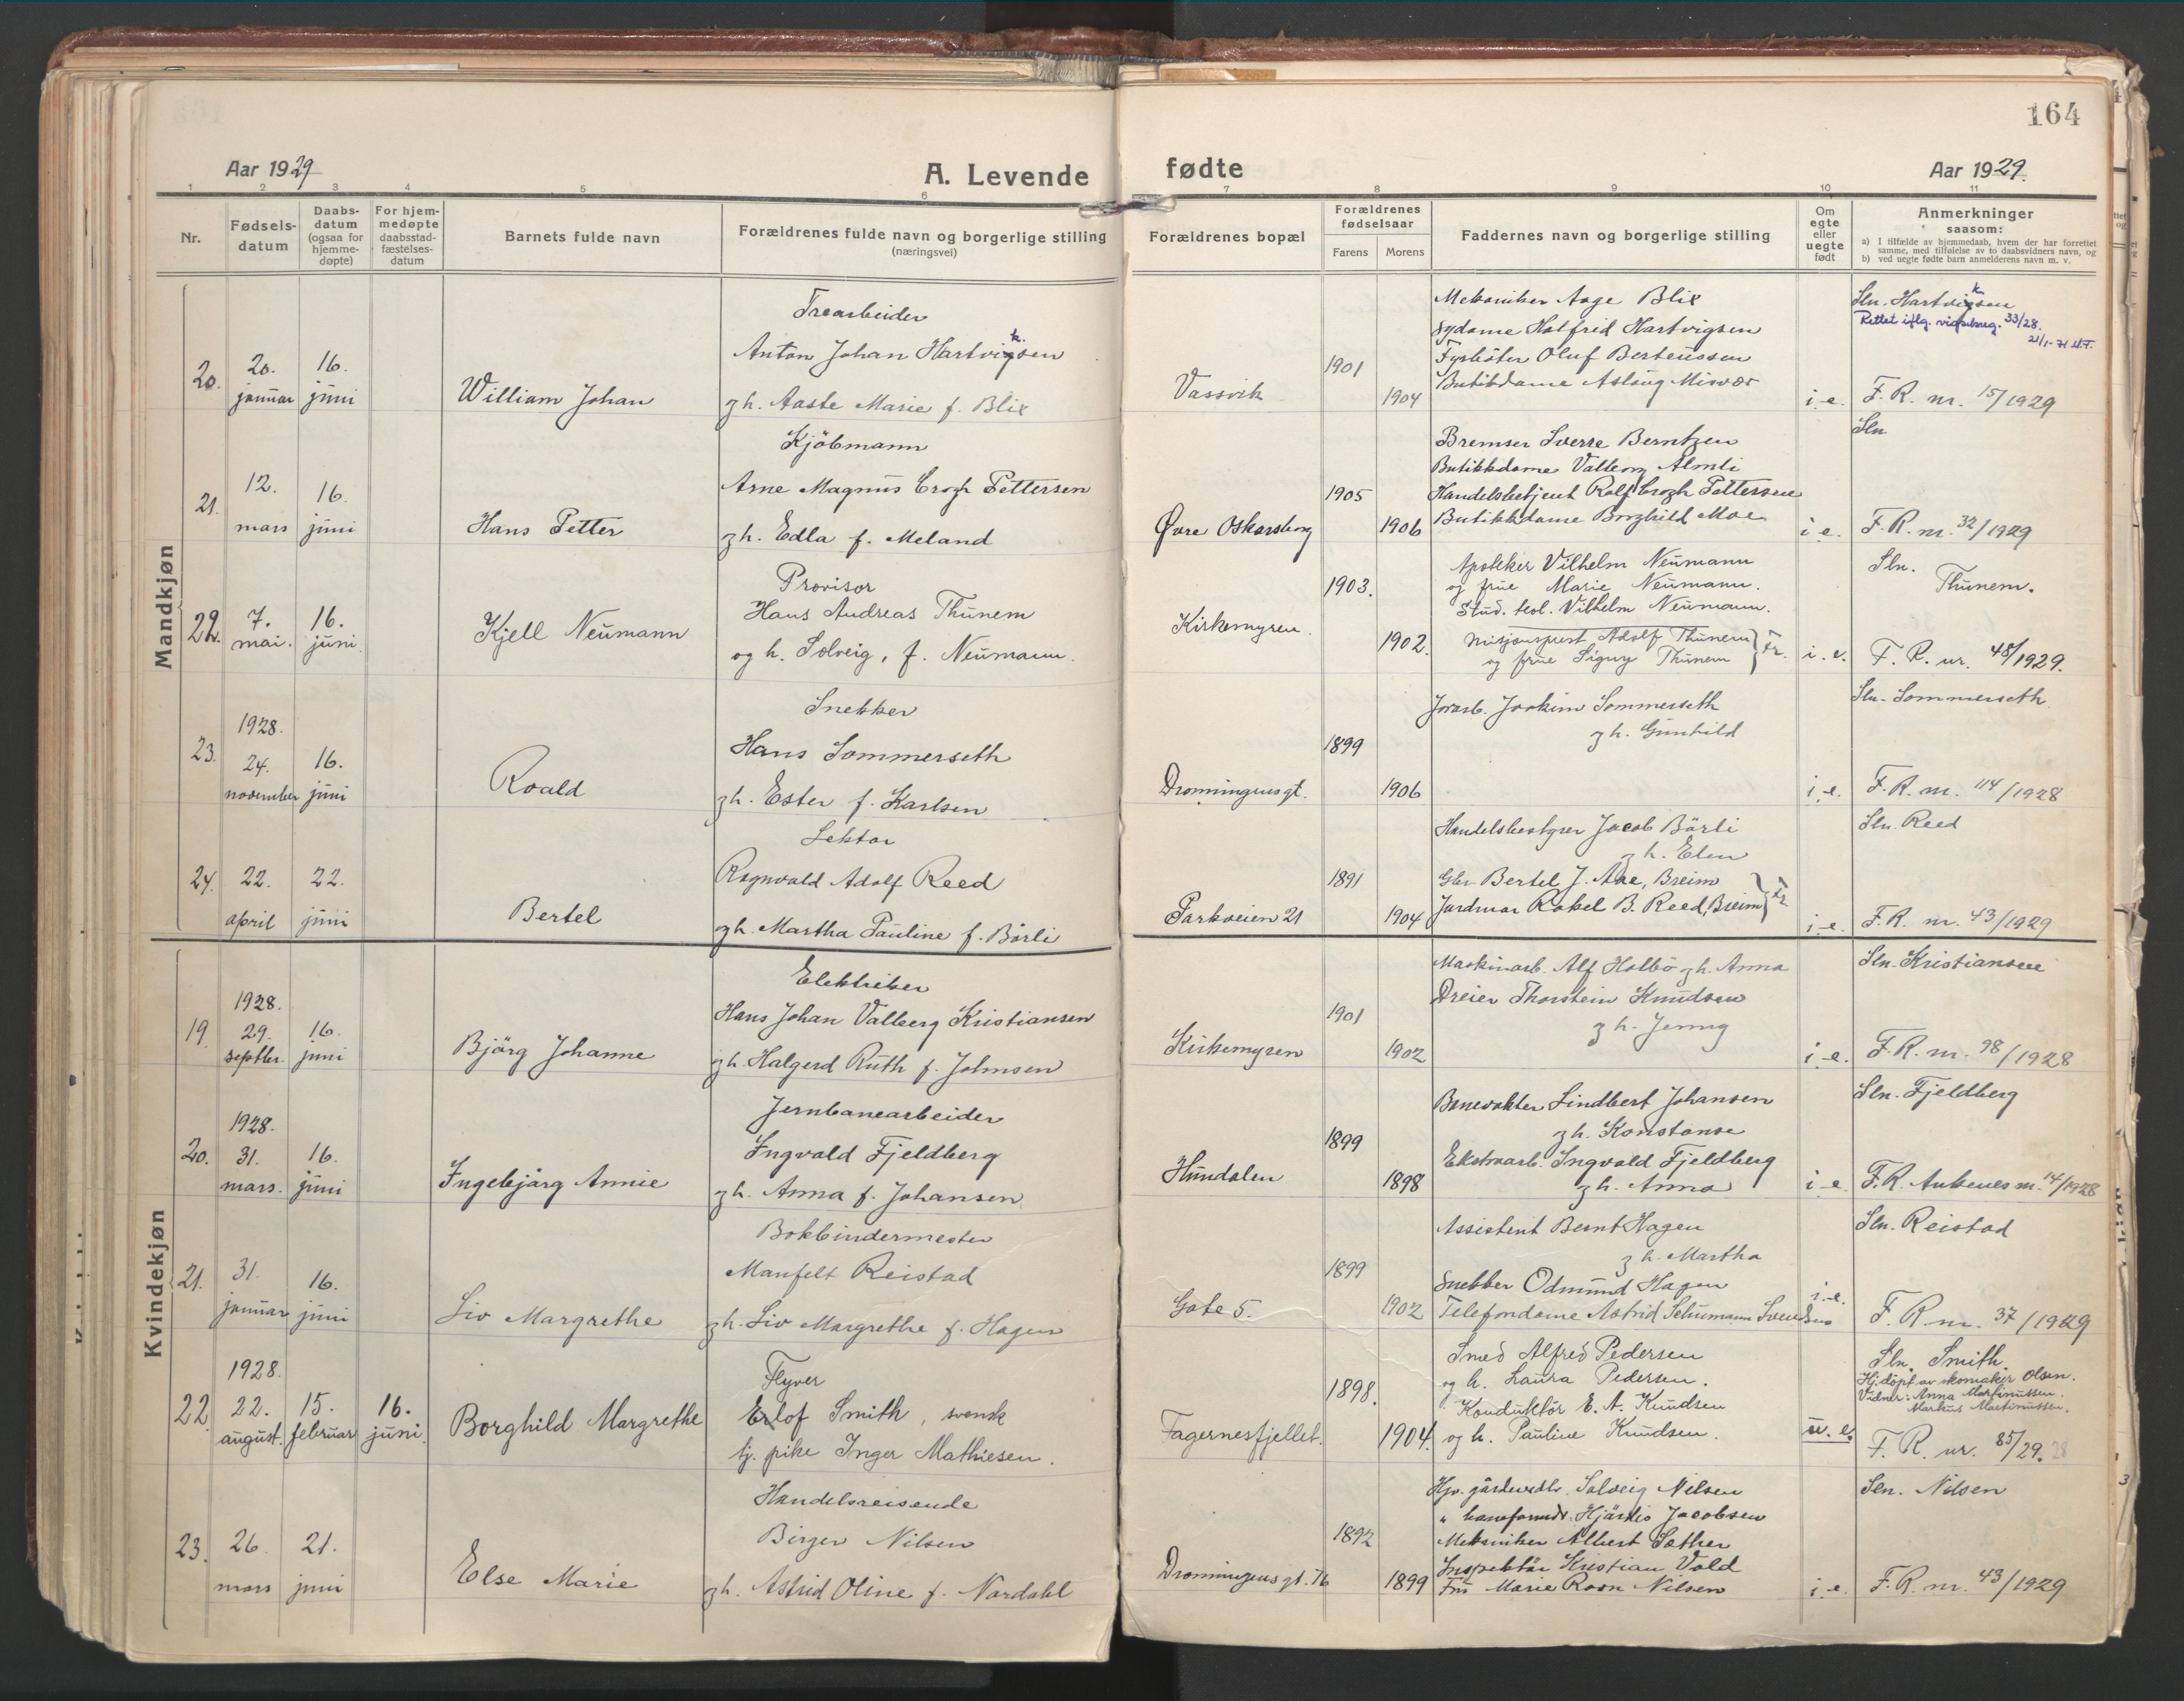 164
Aar 1929
A. Levende
fødte
Aar 1929.
1 2 3 4 5 6 7 8 9 10 11
Nr.
Fødsels-
datum
Daabs-
datum
(ogsaa for
hjemme-
døpte)
For hjem-
medøpte
daabsstad-
fæstelses-
datum
Barnets fulde navn
Forældrenes fulde navn og borgerlige stilling
(næringsvei)
Forældrenes bopæl
Forældrenes
fødselsaar
Farens
Morens
Faddernes navn og borgerlige stilling
Om
egte
eller
uegte
født
Anmerkninger
saasom:
a) I tilfælde av hjemmedaab, hvem der har forrettet
samme, med tilføielse av to daabsvidners navn, og
b) ved uegte fødte barn anmelderens navn m. v.
Mandkjøn
20.
20.
januar
16.
juni
William Johan
Trearbeider
Anton Johan Hartvigsen
k.
g h. Aaste Marie f. Blix
Vassvik
1901
1904
Mekaniker Aage Blix
Sydame Halfrid Hartvigsen
Fyrbøter Oluf Berteussen
Butikdame Aslaug Misvær
i. e.
Sln. Hartvigsen
k
Rettet iflg. vigselreg. 33/28.
21/1-71
F. R. nr. 15/1929
21.
12.
mars
16.
juni
Hans Petter
Kjöbmann
Arne Magnus Crogh Pettersen
g h. Edla f. Meland
Øvre Oskarsborg
1905
1906
Bremser Sverre Berntzen
Butikkdame Valborg Almli
Handelsbetjent Rolf Crogh Pettersen
Butikkdame Borghild Moe
i e.
Sln
F. R. nr. 32/1929
22.
7.
mai.
16.
juni.
Kjell Neumann
Provisor
Hans Andreas Thunem
og h. Solveig, f. Neumann.
Kirkemyren.
1903.
1902.
Apoteker Vilhelm Neumann
og frue Marie Neumann.
Stud. teol. Vilhelm Neumann.
Misjonsprest Adolf Thunem
og frue Signy Thunem } fr.
i. e.
Sln.
Thunem.
F. R. nr. 48/1929.
23.
1928.
24.
november
16.
juni
Roald
Snekker
Hans Sommerseth
g h. Ester f. Karlsen
Dronningensgt.
1899
1906
Jordarb. Joakim Sommerseth
g h. Gunhild
i. e.
Sln. Sommerseth
F. R. nr. 114/1928
24.
22.
april
22.
juni
Bertel
Lektor
Rognvald Adolf Reed
g h. Martha Pauline f. Börli
Parkveien 21
1891
1904
Handelsbestyrer Jacob Börli
g h. Elen
Gbr. Bertel J. Aae, Breim
Jordmor Rakel B. Reed, Breim } fr.
i. e.
Sln. Reed
F. R. nr. 43/1929
Kvindekjøn
19.
1928.
29.
septbr.
16.
juni
Bjärg Johanne
Elektriker
Hans Johan Valberg Kristiansen
g h. Halgerd Ruth f. Johnsen
Kirkemyren
1901
1902
Maskinarb. Alf Holbö g h. Anna
Dreier Thorstein Knudsen
g h. Jenny
i e.
Sln. Kristiansen
F. R. nr. 98/1928
20.
1928.
31.
mars.
16.
juni
Ingebjärg Annie
Jernbanearbeider
Ingvald Fjeldberg
g h. Anna f. Johansen
Hundalen
1899
1898
Banevokter Lindbert Johansen
g h. Konstanse
Ekstraarb. Ingvald Fjeldberg
g h. Anna
i e
Sln. Fjeldberg
F. R. Ankenes nr. 14/1928
21.
31.
januar
16.
juni
Liv Margrethe
Bokbindermester
Manfelt Reistad
g h. Liv Margrethe f. Hagen
Gate 5.
1899
1902
Assistent Bernt Hagen
g h. Martha
Snekker Odmund Hagen
Telefondame Astrid Schumann Svendsen
i. e.
Sln. Reistad
F. R. nr. 37/1929
22.
1928.
22.
august.
15.
februar
16.
juni.
Borghild Margrethe
Flyver
Erlof Smith, svensk
tj. pike Inger Mathiesen.
Fagernesfjellet.
1898.
1904.
Smed Alfred Pedersen
og h. Laura Pedersen.
Konduktör E. A. Knudsen
og h. Pauline Knudsen.
u. e.
Sln. Smith.
Hj. döpt av skomaker Olsen.
Vidner: Anna Martinussen.
Markus Martinussen.
F. R. nr. 85/29. 28
23.
26.
mars
21.
juni
Else Marie
Handelsreisende
Birger Nilsen
g h. Astrid Oline f. Nordahl
Dronningensgt. 76
1892
1899
Hjv. gårdverdbr. Solveig Nilsen
" Hjärdis Jacobsen
Mekaniker Albert Sæther
Inspektör Kristian Vold
Fru Marie Roon Nilsen
i. e.
Sln. Nilsen
F. R. nr. 43/1929